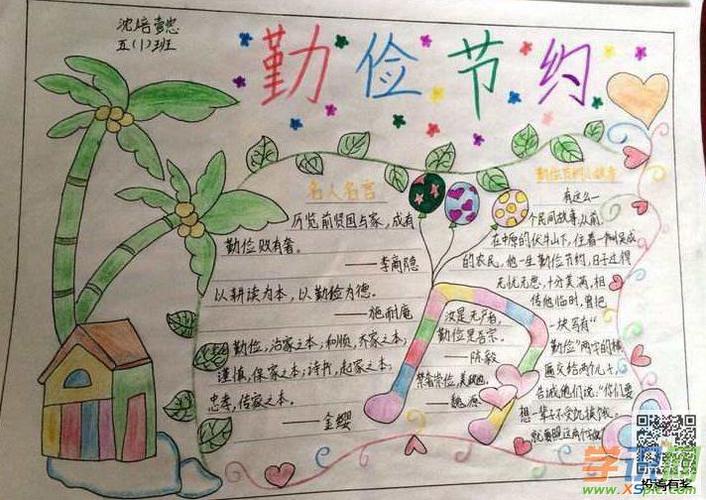 沈培
五(1)班
勤俭节约
名人名言
历览前贤国与家,成有
勤俭败有奢。
——李商隐
以耕读为本,以勤俭为德。
——施耐庵
勤俭,治家之本;和顺,齐家之本;
谨慎,保家之本;诗书,起家之本;
忠孝,传家之本。
——金缨
汝是无产者,
勤俭是吾宗。
——陈毅
禁奢崇俭,美
——魏源
勤俭节约小故事
有这么一
个民间故事从前,
在中原的伏牛山下,住着一个叫吴成
的农民,他一生勤俭节约,日子过得
无忧无愁,十分美满,相
传他临时,曾把
一块写有“
勤俭”两字的横
匾交给两个儿子,
告诫他们说:“你们要
想一辈子不受饥挨饿,
就要照这两个字
学课网
www.xspic
投稿有奖